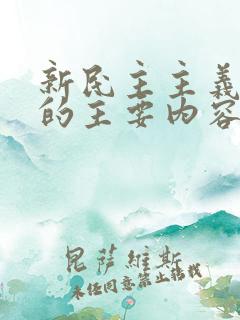 新民主主义
的主要内容
昆萨维斯
未经同意禁止转载